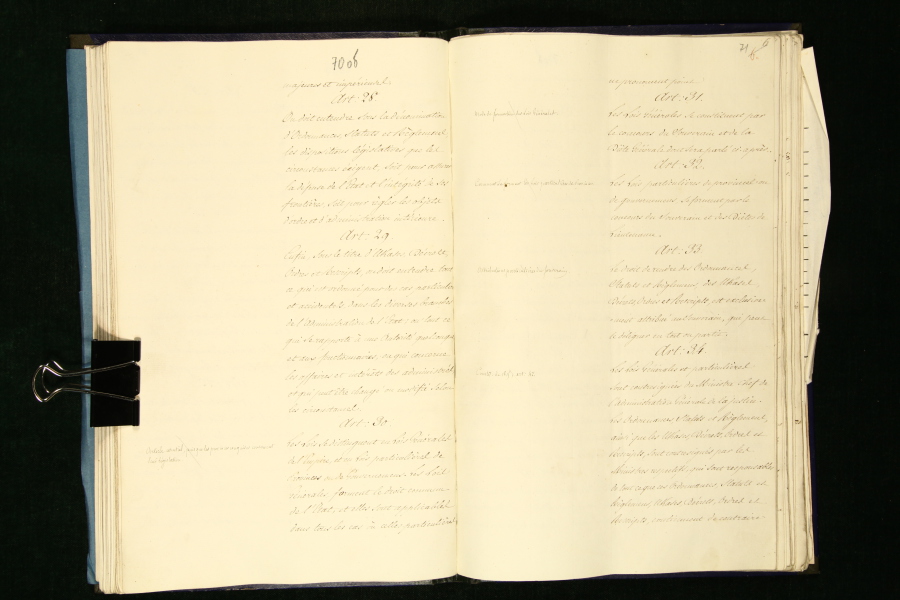 70 ob
majeures et impérieuses.
Art: 28
On doit entendre sous la dénomination
d'Ordonnances, Statuts et Réglemens,
les dispositions législatives que les
circonstances exigent, soit pour assurer
la défense de l'Etat et l'intégrité de ses
frontières, soit pour régler les objets
d'ordre et d'administration intérieure.
Art: 29.
Enfin, sous le titre d'Ukases, Décrets,
Ordres et Rescripts, on doit entendre tout
ce qui est ordonné pour des cas particuliers
et accidentels dans les diverses branches
de l'Administration de l'Etat; ou tout ce
qui se rapporte à une autorité quelconque
et aux fonctionnaires, ou qui concerne
les affaires et intérêts des administrés,
et qui peut être changé ou modifié selon
les circonstances.
Art: 30
Les Lois se distinguent en Lois Générales
de l'Empire, et en Lois particulières de
Provinces ou de Gouvernemens. Les Lois
Générales forment le droit commun
de l'Etat, et elles sont applicables
dans tous les cas où celles particulières
71
6
ne prononcent point.
Art: 31.
Les Lois Générales se consomment par
le concours du Souverain et de la
Diète Générale dont il sera parlé ci-après.
Art: 32.
Les Lois particulières de provinces ou
de gouvernemens, se forment par le
concours du Souverain et des Diètes de
Lieutenances.
Art: 33
Le droit de rendre des Ordonnances,
Statuts et Réglemens, des Ukases,
Décrets, Ordres et Rescripts, est exclusive-
ment attribué au Souverain, qui peut
le déléguer en tout ou partie.
Art: 34.
Les Lois Générales et particulières
sont contresignées du Ministre Chef de
l'administration Générale de la Justice.
Les Ordonnances, Statuts et Réglemens,
ainsi que les Ukases, Décrets, Ordres et
Rescripts, sont contresignés par les
Ministres respectifs, qui sont responsables
de tout ce que ces Ordonnances, Statuts et
Réglemens, Ukases, Décrets, Ordres et
Rescripts, contiennent de contraire